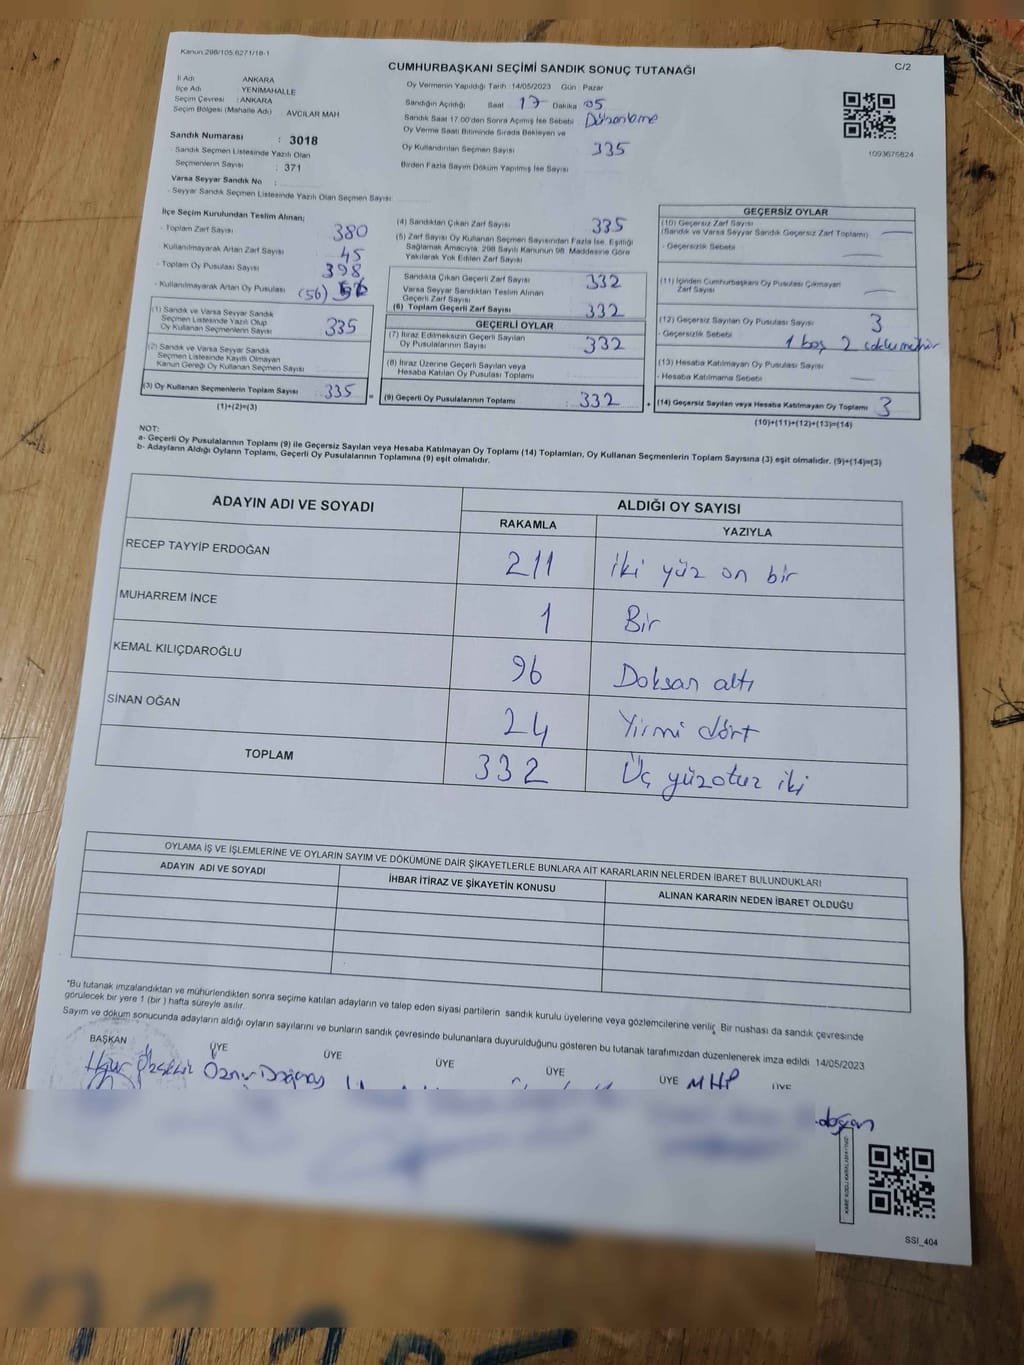 Kanun:298/105.6271/18-1
C/2
CUMHURBAŞKANI SEÇİMİ SANDIK SONUÇ TUTANAĞI
İl Adı ANKARA
İlçe Adı YENİMAHALLE
Seçim Çevresi : ANKARA
Seçim Bölgesi (Mahalle Adı) : AVCILAR MAH
Sandık Numarası : 3018
- Sandık Seçmen Listesinde Yazılı Olan
Seçmenlerin Sayısı : 371
Varsa Seyyar Sandık No :
- Seyyar Sandık Seçmen Listesinde Yazılı Olan Seçmen Sayısı:
Oy Vermenin Yapıldığı Tarih :14/05/2023 Gün : Pazar
Sandığın Açıldığı Saat 17 Dakika 05
Sandık Saat 17.00'den Sonra Açılmış İse Sebebi : Düzenleme
Oy Verme Saati Bitiminde Sırada Bekleyen ve
Oy Kullandırılan Seçmen Sayısı 335
Birden Fazla Sayım Döküm Yapılmış İse Sayısı
1093675824
İlçe Seçim Kurulundan Teslim Alınan;
- Toplam Zarf Sayısı 380
- Kullanılmayarak Artan Zarf Sayısı 45
- Toplam Oy Pusulası Sayısı 398
- Kullanılmayarak Artan Oy Pusulası (56)
(1) Sandık ve Varsa Seyyar Sandık
Seçmen Listesinde Yazılı Olup
Oy Kullanan Seçmenlerin Sayısı 335
(2) Sandık ve Varsa Seyyar Sandık
Seçmen Listesinde Kayıtlı Olmayan
Kanun Gereği Oy Kullanan Seçmen Sayısı
(3) Oy Kullanan Seçmenlerin Toplam Sayısı : 335 =
(1)+(2)=(3)
(4) Sandıktan Çıkan Zarf Sayısı 335
(5) Zarf Sayısı Oy Kullanan Seçmen Sayısından Fazla İse, Eşitliği
Sağlamak Amacıyla, 298 Sayılı Kanunun 98. Maddesine Göre
Yakılarak Yok Edilen Zarf Sayısı
Sandıkta Çıkan Geçerli Zarf Sayısı 332
Varsa Seyyar Sandıktan Teslim Alınan
Geçerli Zarf Sayısı
(6) Toplam Geçerli Zarf Sayısı 332
GEÇERLİ OYLAR
(7) İtiraz Edilmeksizin Geçerli Sayılan
Oy Pusulalarının Sayısı 332
(8) İtiraz Üzerine Geçerli Sayılan veya
Hesaba Katılan Oy Pusulası Toplamı
(9) Geçerli Oy Pusulalarının Toplamı : 332 +
GEÇERSİZ OYLAR
(10) Geçersiz Zarf Sayısı
(Sandık ve Varsa Seyyar Sandık Geçersiz Zarf Toplamı) —
- Geçersizlik Sebebi —
(11) İçinden Cumhurbaşkanı Oy Pusulası Çıkmayan
Zarf Sayısı —
(12) Geçersiz Sayılan Oy Pusulası Sayısı 3
- Geçersizlik Sebebi 1 boş 2 çoklu mühür
(13) Hesaba Katılmayan Oy Pusulası Sayısı
- Hesaba Katılmama Sebebi —
(14) Geçersiz Sayılan veya Hesaba Katılmayan Oy Toplamı 3
(10)+(11)+(12)+(13)=(14)
NOT:
a- Geçerli Oy Pusulalarının Toplamı (9) ile Geçersiz Sayılan veya Hesaba Katılmayan Oy Toplamı (14) Toplamları, Oy Kullanan Seçmenlerin Toplam Sayısına (3) eşit olmalıdır. (9)+(14)=(3)
b- Adayların Aldığı Oyların Toplamı, Geçerli Oy Pusulalarının Toplamına (9) eşit olmalıdır.
ADAYIN ADI VE SOYADI ALDIĞI OY SAYISI
RAKAMLA YAZIYLA
RECEP TAYYİP ERDOĞAN 211 iki yüz on bir
MUHARREM İNCE 1 Bir
KEMAL KILIÇDAROĞLU 96 Doksan altı
SİNAN OĞAN 24 Yirmi dört
TOPLAM 332 Üç yüzotuz iki
OYLAMA İŞ VE İŞLEMLERİNE VE OYLARIN SAYIM VE DÖKÜMÜNE DAİR ŞİKAYETLERLE BUNLARA AİT KARARLARIN NELERDEN İBARET BULUNDUKLARI
ADAYIN ADI VE SOYADI İHBAR İTİRAZ VE ŞİKAYETİN KONUSU ALINAN KARARIN NEDEN İBARET OLDUĞU
*Bu tutanak imzalandıktan ve mühürlendikten sonra seçime katılan adayların ve talep eden siyasi partilerin sandık kurulu üyelerine veya gözlemcilerine verilir. Bir nüshası da sandık çevresinde
görülecek bir yere 1 (bir ) hafta süreyle asılır.
Sayım ve döküm sonucunda adayların aldığı oyların sayılarını ve bunların sandık çevresinde bulunanlara duyurulduğunu gösteren bu tutanak tarafımızdan düzenlenerek imza edildi 14/05/2023
BAŞKAN ÜYE ÜYE ÜYE ÜYE ÜYE MHP ÜYE
SSI_404